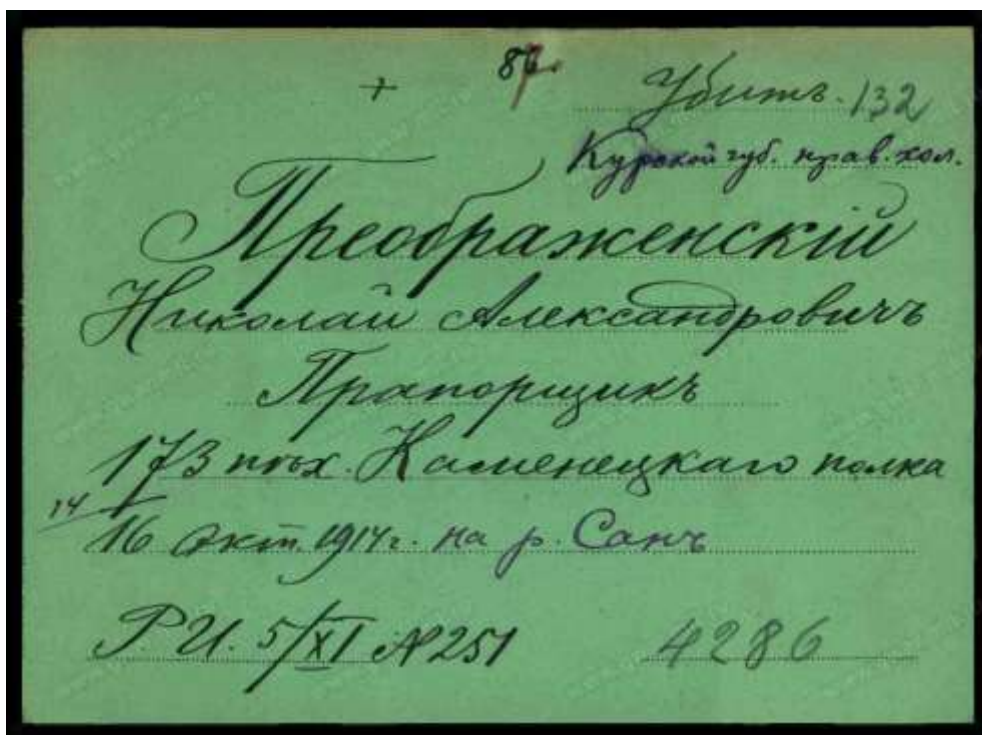 + 86. Убитъ. 132
Курской губ. прав. хол.
Преображенскій
Николай Александровичъ
Прапорщикъ
173 пѣх. Каменецкаго полка
14
16 Окт. 1914 г. на р. Санъ
Р. И. 5/XI № 251 4286